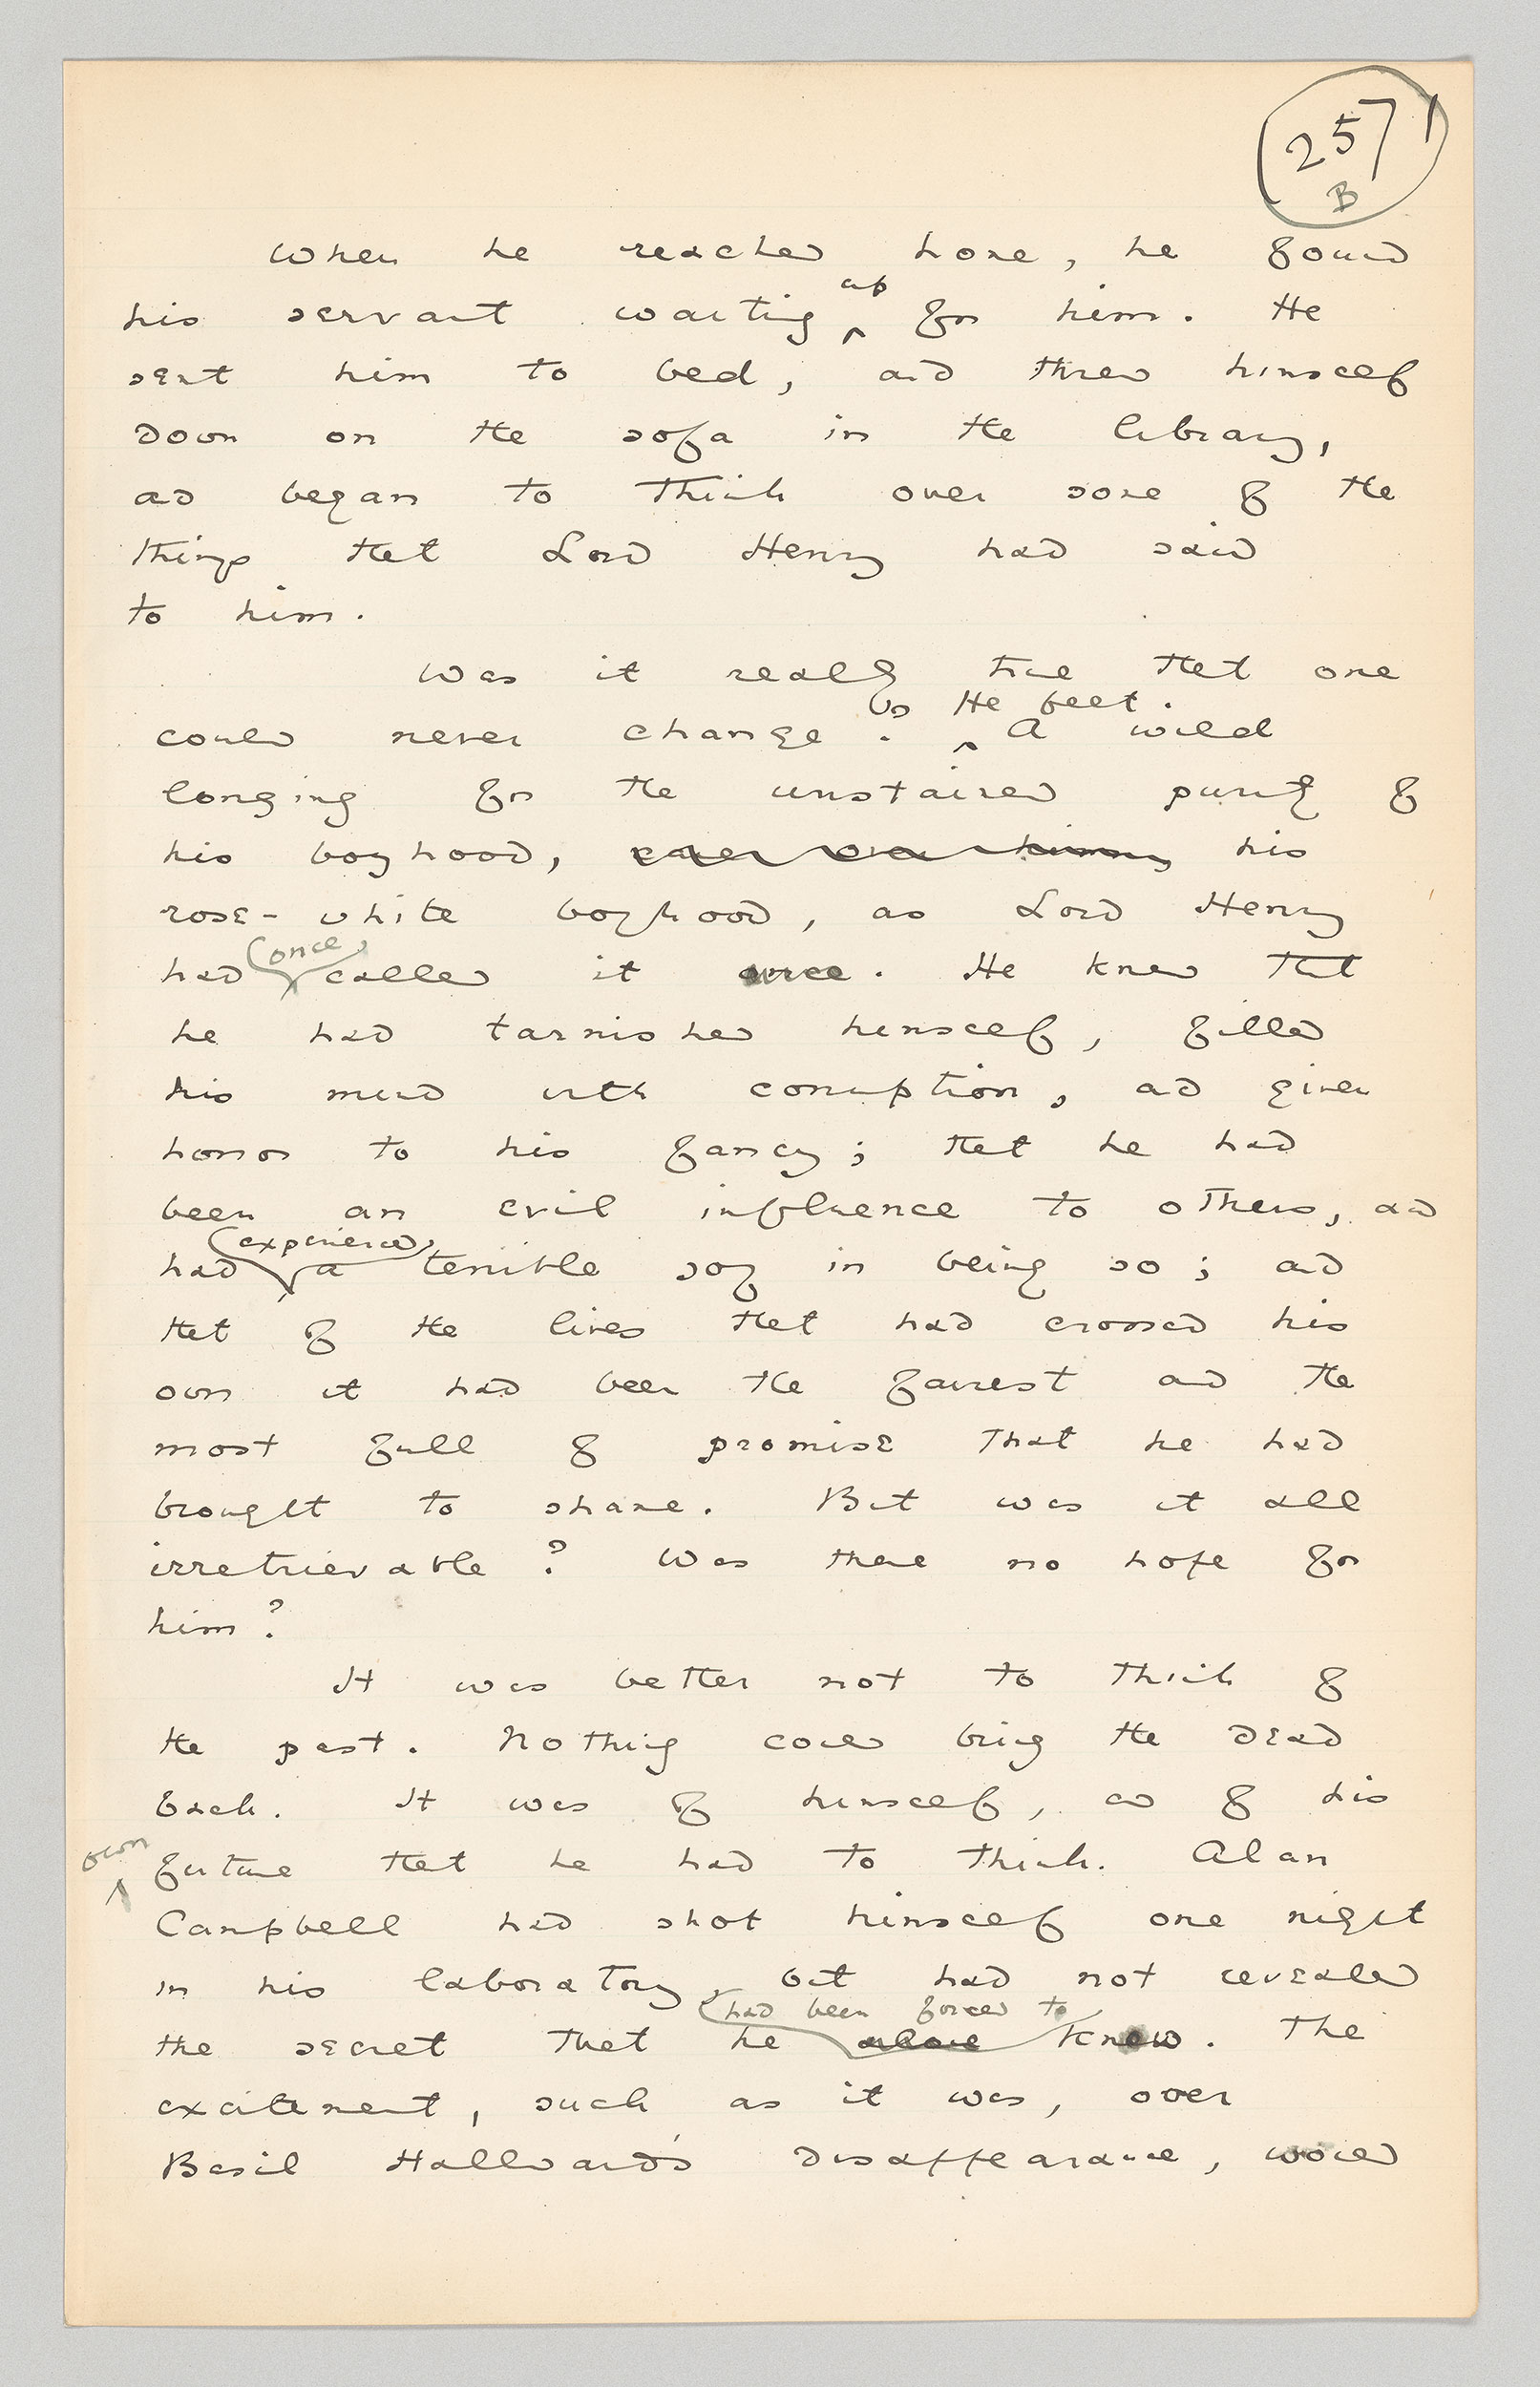 257
B
When he reached home, he found
his servant waiting up for him. He
sent him to bed, and threw himself
down on the sofa in the library,
and began to think over some of the
things that Lord Henry had said
to him.
Was it really true that one
could never change? He felt a wild
longing for the unstained purity of
his boyhood, came over him, his
rose-white boyhood, as Lord Henry
had once called it once. He knew that
he had tarnished himself, filled
his mind with corruption, and given
horror to his fancy; that he had
been an evil influence to others, and
had experienced a terrible joy in being so; and
that of the lives that had crossed his
own it had been the fairest and the
most full of promise that he had
brought to shame. But was it all
irretrievable? Was there no hope for
him?
It was better not to think of
the past. Nothing could bring the dead
back. It was of himself, and of his
own future that he had to think. Alan
Campbell had shot himself one night
in his laboratory, but had not revealed
the secret that he had been forced to alone know. The
excitement, such as it was, over
Basil Hallward's disappearance, would